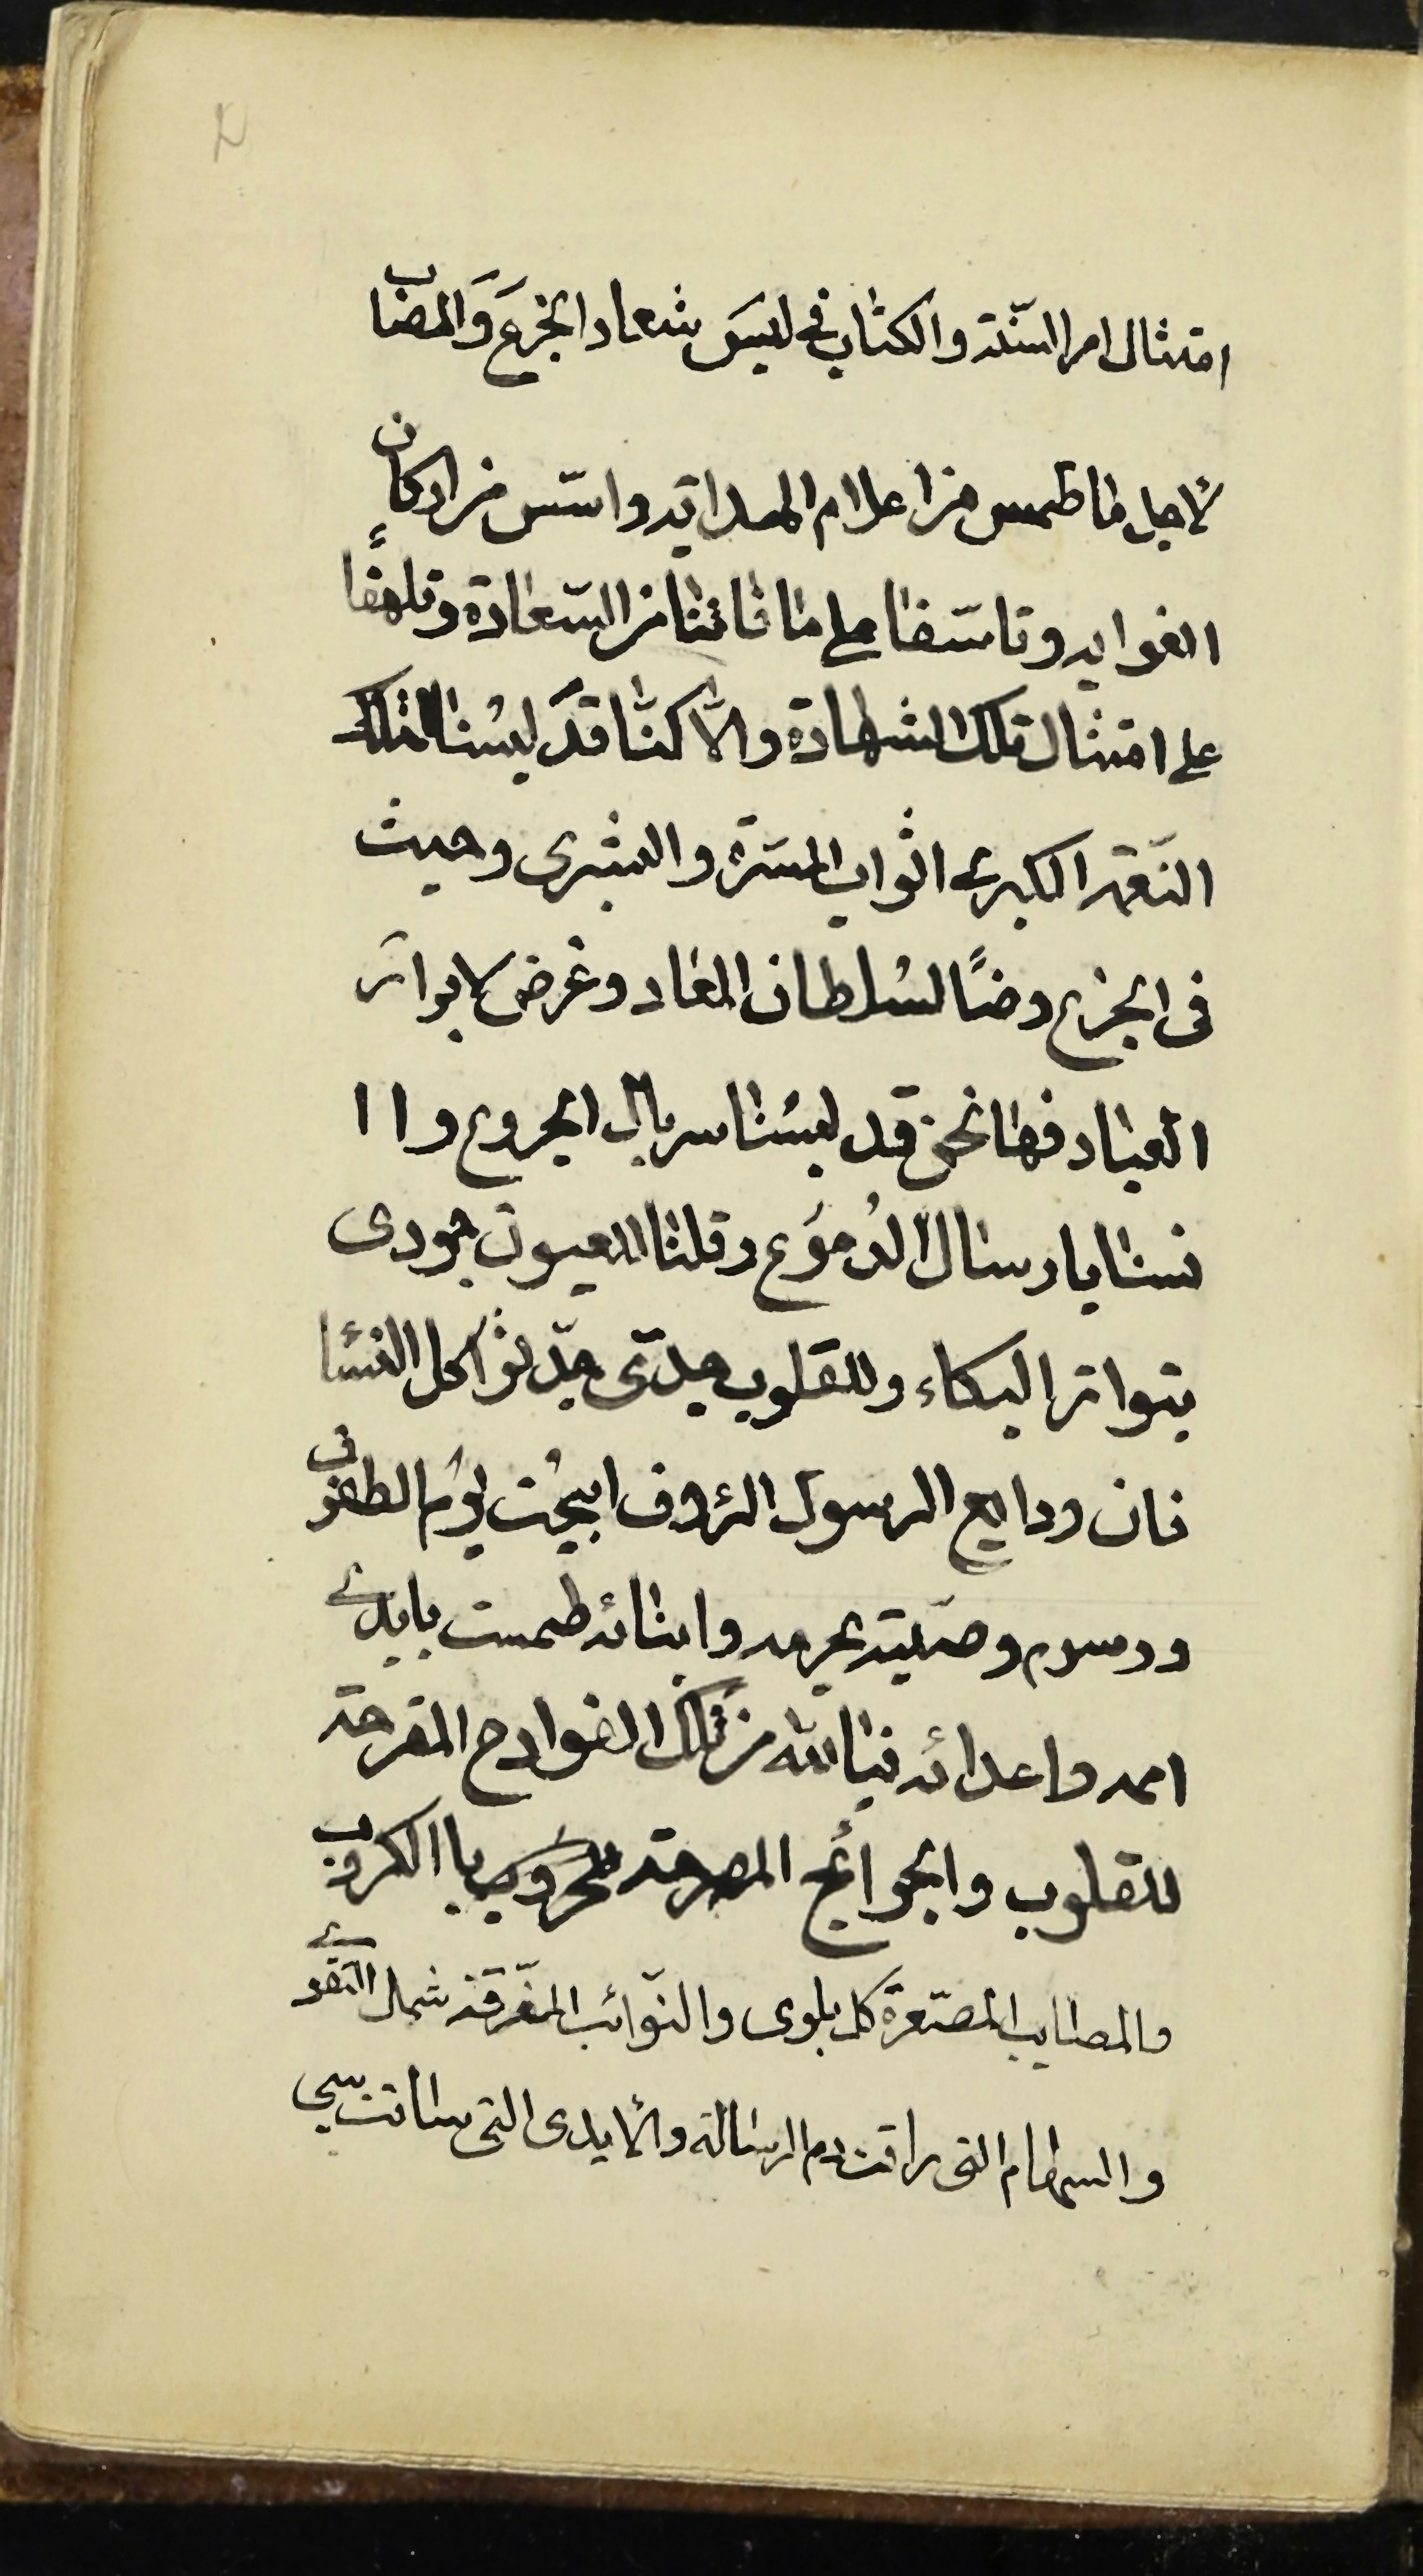 امتثال امر السّنة والكتاب فى لبس شعار الجزع والمصاب
لاجل ما طمس من اعلام الهداية واسّس من اركان
الغواية وتاسّفا على ما فاتنا من السّعادة وتلهّفًا
على امتثال تلك الشهادة والّا كنّا قد لبسنا لتلك
النّعمة الكبرى اثواب المسرّة والبشرى وحيث
فى الجزع رضًا لسلطان المعاد وغرض لابرار
العباد فها نحن قد لبسنا سربال الجزوع واا
نسنا بارسال الدموع وقلنا للعيون جودى
بتواتر البكاء وللقلوب جدّى جدّ ثواكل النساء
فان ودايع الرسول الرؤف ابيحت يوم الطفوف
ورسوم وصيّته بحرمه وابنائه طمست بايدى
امته واعدائه فيالله من تلك الفوادح المقرحة
للقلوب والجوائح المصرحة بالكروب
والمصايب المصغّرة كل بلوى والنّوائب المفرّقة شمل التقوى
والسهام التى راقت دم الرسالة والايدى التى ساقت سبى